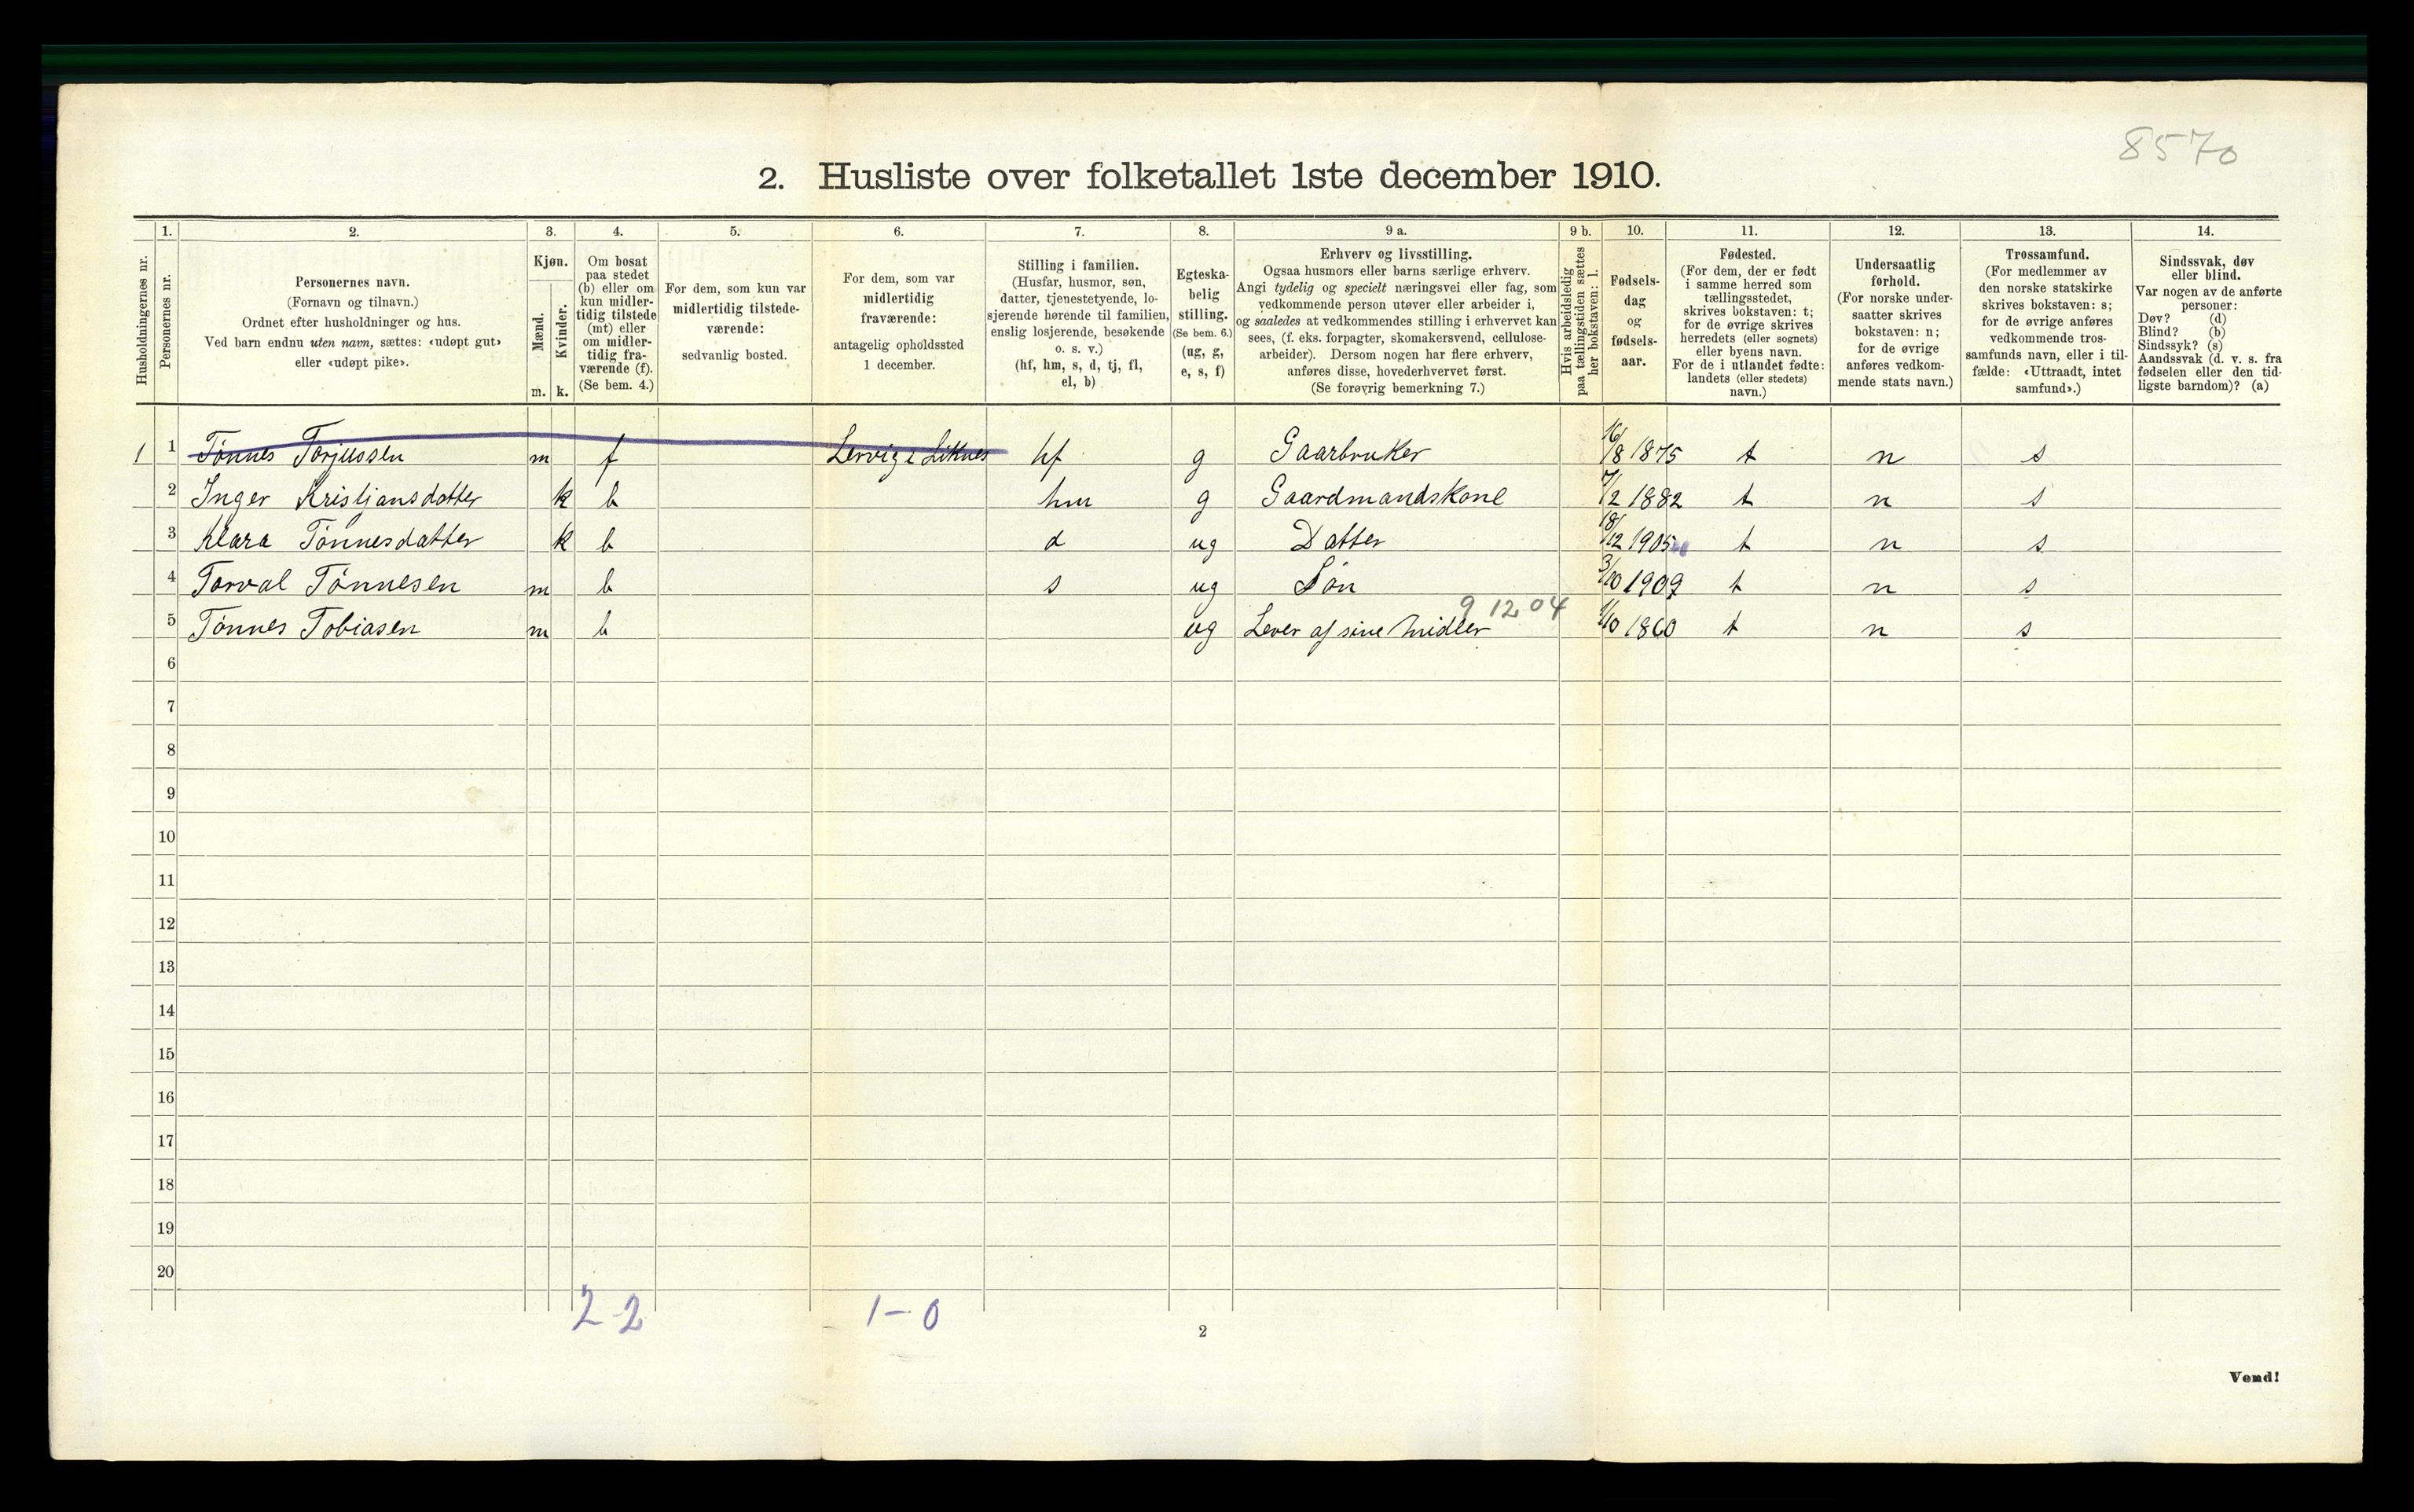 8570
2. Husliste over folketallet 1ste december 1910.
Husholdningernes nr.
1.
Personernes nr.
2.
Personernes navn.
(Fornavn og tilnavn.)
Ordnet efter husholdninger og hus.
Ved barn endnu uten navn, sættes: «udøpt gut»
eller «udøpt pike».
3.
Kjøn.
Mænd.
Kvinder.
m. k.
4.
Om bosat
paa stedet
(b) eller om
kun midler-
tidig tilstede
(mt) eller
om midler-
tidig fra-
værende (f).
(Se bem. 4.)
5.
For dem, som kun var
midlertidig tilstede-
værende:
sedvanlig bosted.
6.
For dem, som var
midlertidig
fraværende:
antagelig opholdssted
1 december.
7.
Stilling i familien.
(Husfar, husmor, søn,
datter, tjenestetyende, lo-
sjerende hørende til familien,
enslig losjerende, besøkende
o. s. v.)
(hf, hm, s, d, tj, fl,
el, b)
8.
Egteska-
belig
stilling.
(Se bem. 6.)
(ug, g,
e, s, f)
9 a.
Erhverv og livsstilling.
Ogsaa husmors eller barns særlige erhverv.
Angi tydelig og specielt næringsvei eller fag, som
vedkommende person utøver eller arbeider i,
og saaledes at vedkommendes stilling i erhvervet kan
sees, (f. eks. forpagter, skomakersvend, cellulose-
arbeider). Dersom nogen har flere erhverv,
anføres disse, hovederhvervet først.
(Se forøvrig bemerkning 7.)
9 b.
Hvis arbeidsledig
paa tællingstiden sættes
her bokstaven: l.
10.
Fødsels-
dag
og
fødsels-
aar.
11.
Fødested.
(For dem, der er født
i samme herred som
tællingsstedet,
skrives bokstaven: t;
for de øvrige skrives
herredets (eller sognets)
eller byens navn.
For de i utlandet fødte:
landets (eller stedets)
navn.)
12.
Undersaatlig
forhold.
(For norske under-
saatter skrives
bokstaven: n;
for de øvrige
anføres vedkom-
mende stats navn.)
13.
Trossamfund.
(For medlemmer av
den norske statskirke
skrives bokstaven: s;
for de øvrige anføres
vedkommende tros-
samfunds navn, eller i til-
fælde: «Uttraadt, intet
samfund».)
14.
Sindssvak, døv
eller blind.
Var nogen av de anførte
personer:
Døv? (d)
Blind? (b)
Sindssyk? (s)
Aandssvak (d. v. s. fra
fødselen eller den tid-
ligste barndom)? (a)
1 1 Tønnes Torjussen m f Lervig i Liknes hf g Gaarbruker 16/8 1875 t n s
2 Inger Kristjansdatter k b hm g Gaardmandskone 7/2 1882 t n s
3 Klara Tønnesdatter k b d ug Datter 18/12 1905 t n s
4 Torval Tønnesen m b s ug Søn 3/10 1909 t n s
9 12 04
5 Tønnes Tobiasen m b ug Lever af sine Midler 1/10 1860 t n s
6
7
8
9
10
11
12
13
14
15
16
17
18
19
20
2-2 1-0
2
Vend!